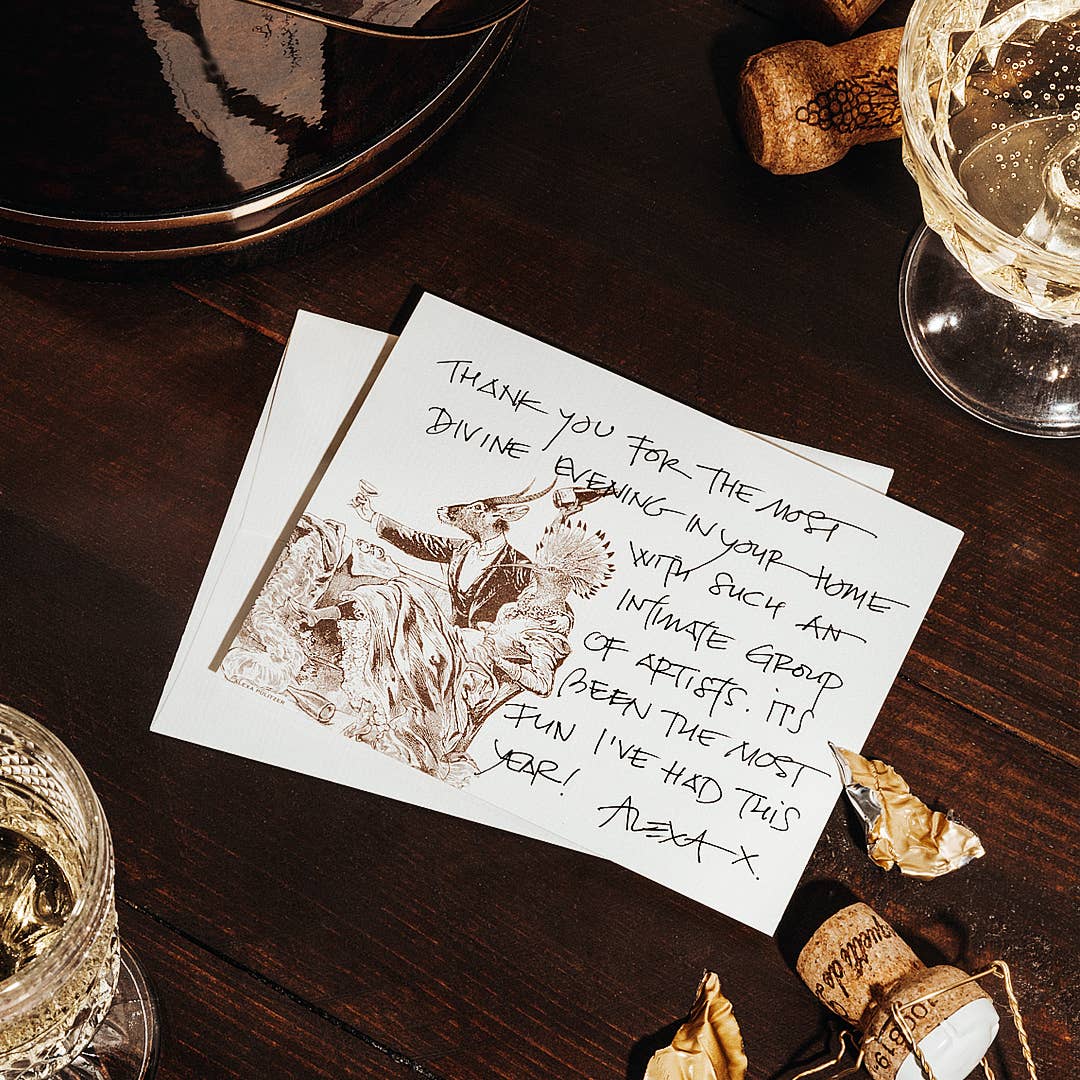 THANK YOU FOR THE MOST
DIVINE EVENING IN YOUR HOME
WITH SUCH AN
INTIMATE GROUP
OF ARTISTS. ITS
BEEN THE MOST
FUN I'VE HAD THIS
YEAR!
ALEXA X.
ALEXA PULITZER